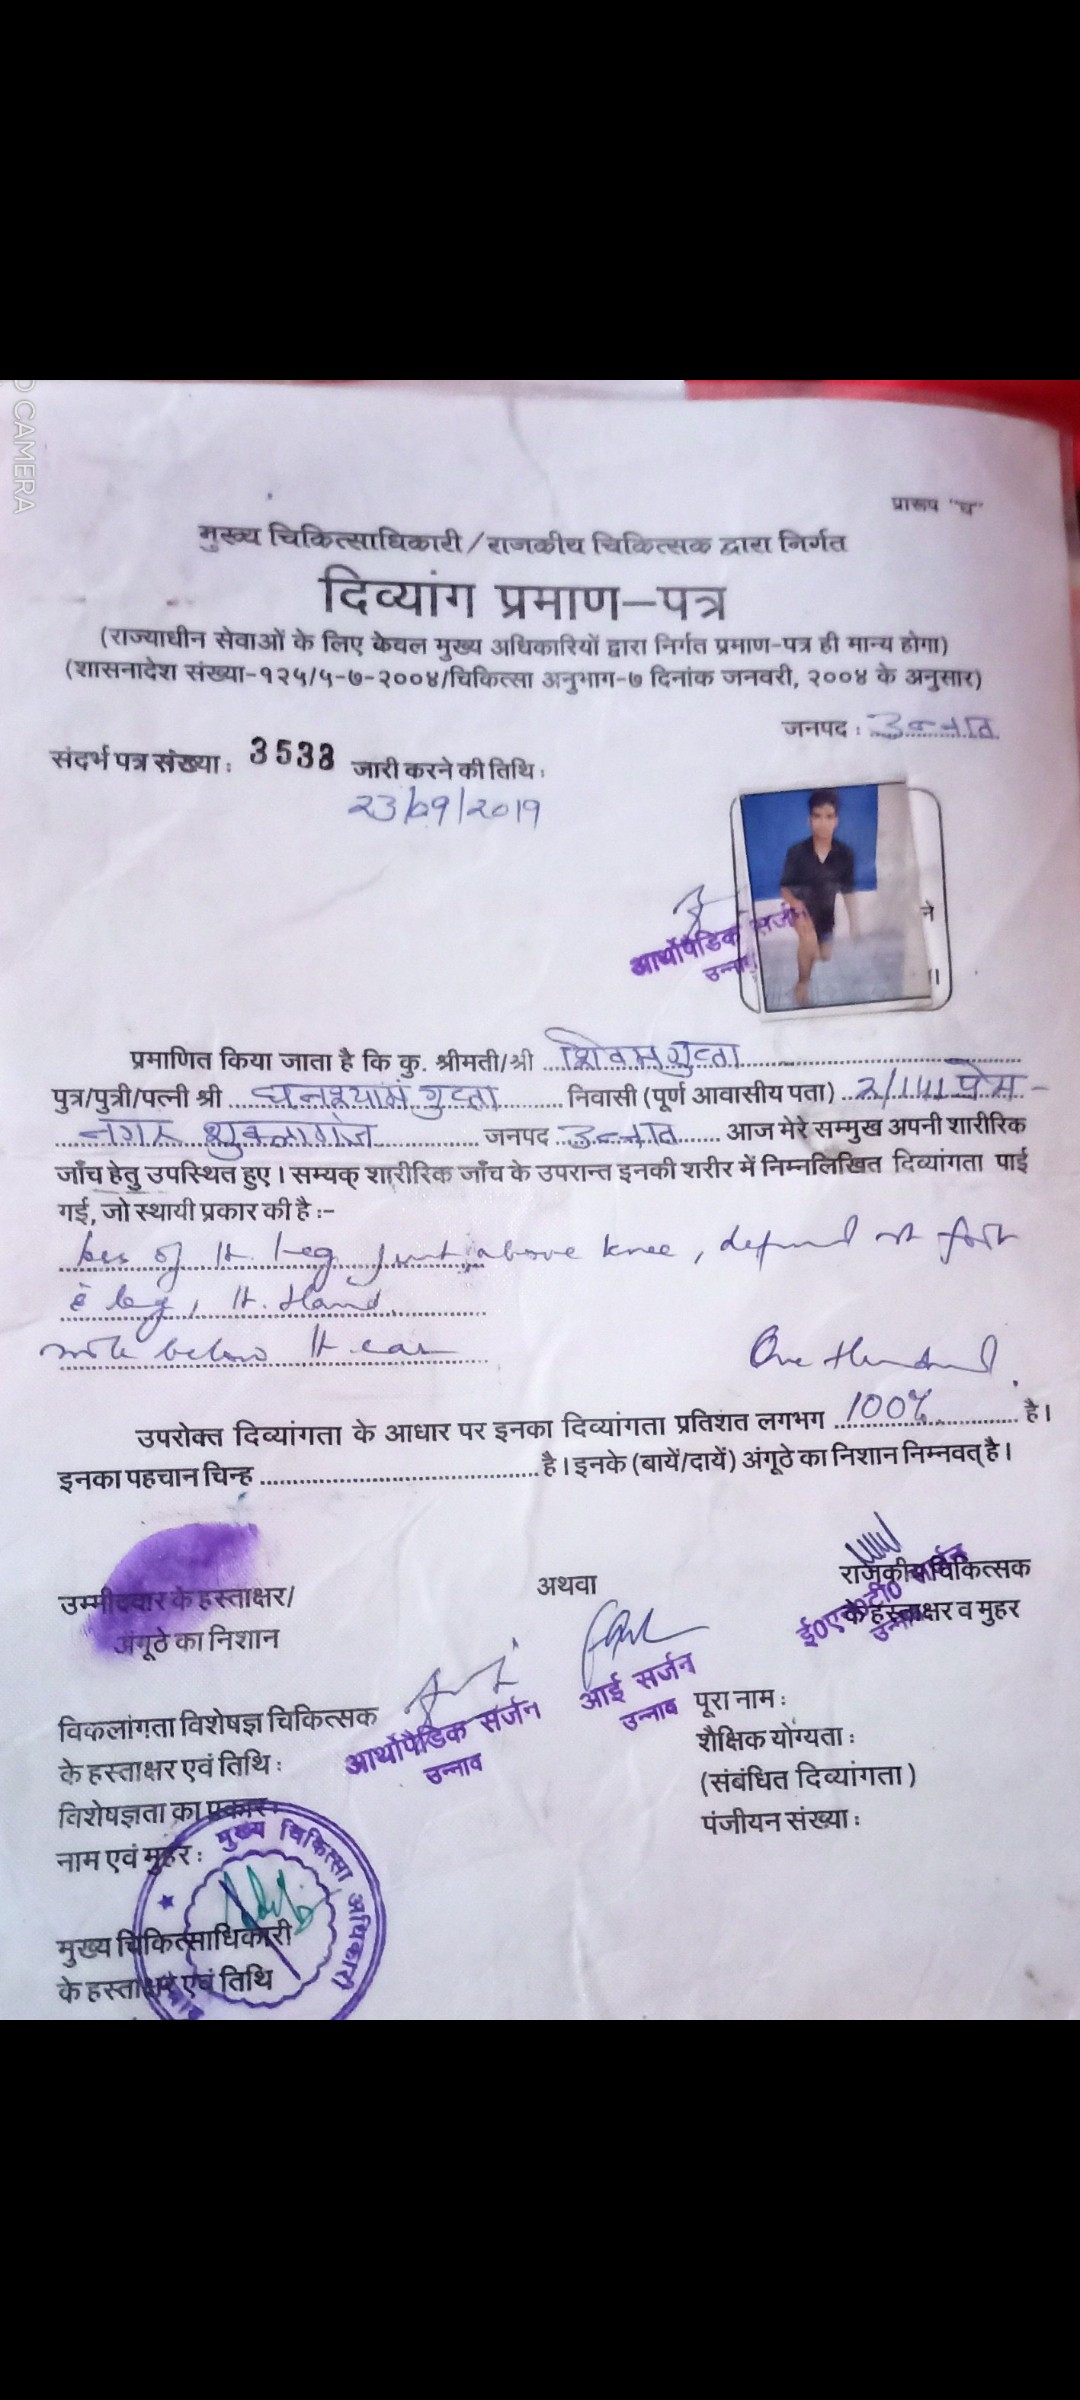 CAMERA
प्रारूप "घ"
मुख्य चिकित्साधिकारी/राजकीय चिकित्सक द्वारा निर्गत
दिव्यांग प्रमाण-पत्र
(राज्याधीन सेवाओं के लिए केवल मुख्य अधिकारियों द्वारा निर्गत प्रमाण-पत्र ही मान्य होगा)
(शासनादेश संख्या-१२५/५-७-२००४/चिकित्सा अनुभाग-७ दिनांक जनवरी, २००४ के अनुसार)
जनपद : उन्नाव
संदर्भ पत्र संख्या : 3533 जारी करने की तिथि :
23/09/2019
ने
आर्थोपैडिक सर्जन
उन्नाव
प्रमाणित किया जाता है कि कु. श्रीमती/श्री शिवम गुप्ता
पुत्र/पुत्री/पत्नी श्री घनश्याम गुप्ता निवासी (पूर्ण आवासीय पता) 2/141 प्रेम-
नगर शुक्लागंज जनपद उन्नाव आज मेरे सम्मुख अपनी शारीरिक
जाँच हेतु उपस्थित हुए। सम्यक् शारीरिक जाँच के उपरान्त इनकी शरीर में निम्नलिखित दिव्यांगता पाई
गई, जो स्थायी प्रकार की है :-
of lt. leg just above knee,
leg, lt. Hand
mole below lt ear
One Hundred
उपरोक्त दिव्यांगता के आधार पर इनका दिव्यांगता प्रतिशत लगभग 100% है।
इनका पहचान चिन्ह है। इनके (बायें/दायें) अंगूठे का निशान निम्नवत् है।
उम्मीदवार के हस्ताक्षर/ अथवा राजकीय चिकित्सक
अंगूठे का निशान के हस्ताक्षर व मुहर
ई०एन०टी० सर्जन
उन्नाव
विकलांगता विशेषज्ञ चिकित्सक आर्थोपैडिक सर्जन आई सर्जन पूरा नाम :
के हस्ताक्षर एवं तिथि : उन्नाव उन्नाव शैक्षिक योग्यता :
(संबंधित दिव्यांगता)
विशेषज्ञता का प्रकार : पंजीयन संख्या :
नाम एवं मुहर :
मुख्य चिकित्सा अधिकारी
मुख्य चिकित्साधिकारी
के हस्ताक्षर एवं तिथि